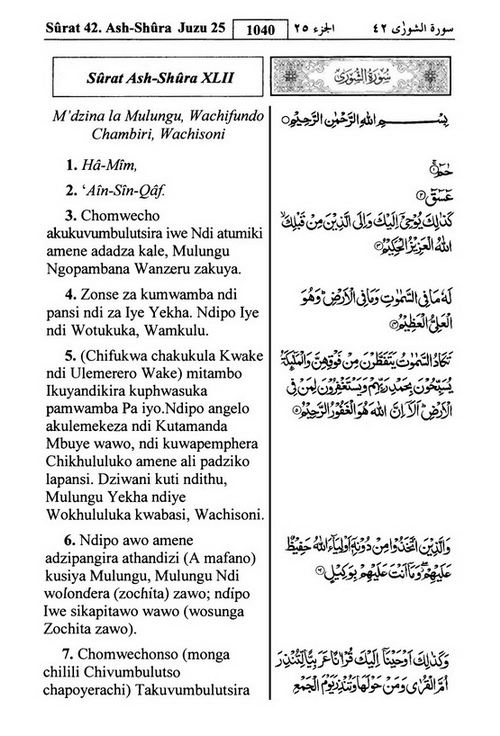 Sûrat 42. Ash-Shûra Juzu 25
1040
الجزء ٢٥
سورة الشورى ٤٢
Sûrat Ash-Shûra XLII
سُورَةُ الشُّورَىٰ
M'dzina la Mulungu, Wachifundo
Chambiri, Wachisoni
بِسْمِ اللهِ الرَّحْمٰنِ الرَّحِيْمِ
1. Hâ-Mîm,
حٰمٓ ۝١
2. 'Aîn-Sîn-Qâf.
عٓسٓقٓ ۝٢
3. Chomwecho
akukuvumbulutsira iwe Ndi atumiki
amene adadza kale, Mulungu
Ngopambana Wanzeru zakuya.
كَذٰلِكَ يُوْحِيْٓ اِلَيْكَ وَاِلَى الَّذِيْنَ مِنْ قَبْلِكَ
اللهُ الْعَزِيْزُ الْحَكِيْمُ ۝٣
4. Zonse za kumwamba ndi
pansi ndi za Iye Yekha. Ndipo Iye
ndi Wotukuka, Wamkulu.
لَهٗ مَا فِى السَّمٰوٰتِ وَمَا فِى الْاَرْضِ ۖ وَهُوَ
الْعَلِىُّ الْعَظِيْمُ ۝٤
5. (Chifukwa chakukula Kwake
ndi Ulemerero Wake) mitambo
Ikuyandikira kuphwasuka
pamwamba Pa iyo.Ndipo angelo
akulemekeza ndi Kutamanda
Mbuye wawo, ndi kuwapemphera
Chikhululuko amene ali padziko
lapansi. Dziwani kuti ndithu,
Mulungu Yekha ndiye
Wokhululuka kwabasi, Wachisoni.
تَكَادُ السَّمٰوٰتُ يَتَفَطَّرْنَ مِنْ فَوْقِهِنَّ وَالْمَلٰٓئِكَةُ
يُسَبِّحُوْنَ بِحَمْدِ رَبِّهِمْ وَيَسْتَغْفِرُوْنَ لِمَنْ فِى
الْاَرْضِ ۗ اَلَآ اِنَّ اللهَ هُوَ الْغَفُوْرُ الرَّحِيْمُ ۝٥
6. Ndipo awo amene
adzipangira athandizi (A mafano)
kusiya Mulungu, Mulungu Ndi
wolondera (zochita) zawo; ndipo
Iwe sikapitawo wawo (wosunga
Zochita zawo).
وَالَّذِيْنَ اتَّخَذُوْا مِنْ دُوْنِهٖٓ اَوْلِيَآءَ اللهُ حَفِيْظٌ
عَلَيْهِمْ ۖ وَمَآ اَنْتَ عَلَيْهِمْ بِوَكِيْلٍ ۝٦
7. Chomwechonso (monga
chilili Chivumbulutso
chapoyerachi) Takuvumbulutsira
وَكَذٰلِكَ اَوْحَيْنَآ اِلَيْكَ قُرْاٰنًا عَرَبِيًّا لِّتُنْذِرَ
اُمَّ الْقُرٰى وَمَنْ حَوْلَهَا وَتُنْذِرَ يَوْمَ الْجَمْعِ